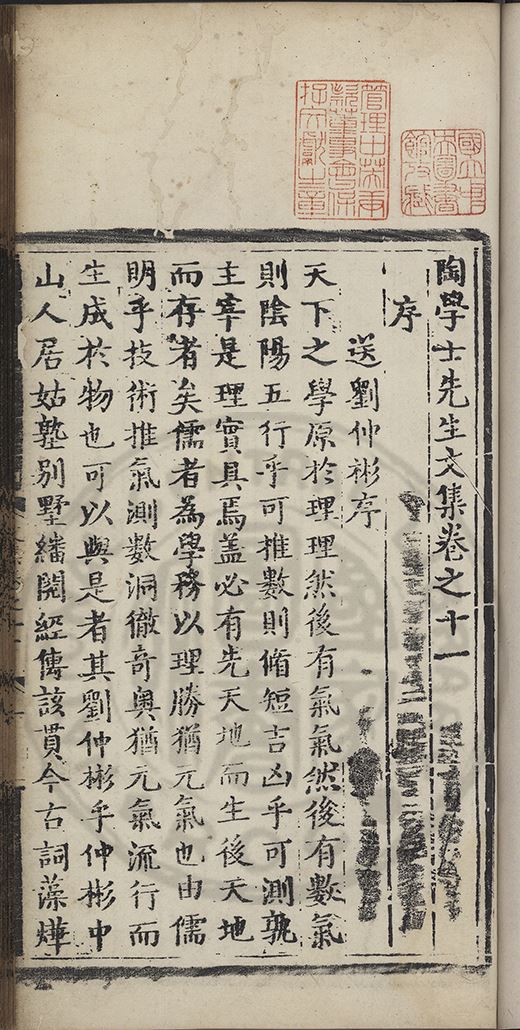 陶學士先生文集卷之十一
序
送劉仲彬序
天下之學原於理理然後有氣氣然後有數氣
則陰陽五行乎可推數則脩短吉凶乎可測孰
主宰是理實具焉盖必有先天地而生後天地
而存者矣儒者為學務以理勝猶元氣也由儒
明乎技術推氣測數洞徹奇奧猶元氣流行而
生成於物也可以與是者其劉仲彬乎仲彬中
山人居姑孰別墅繙閱經傳該貫今古詞藻燁
國立中央圖書館收藏
管理中英庚款董事會保存文獻之章